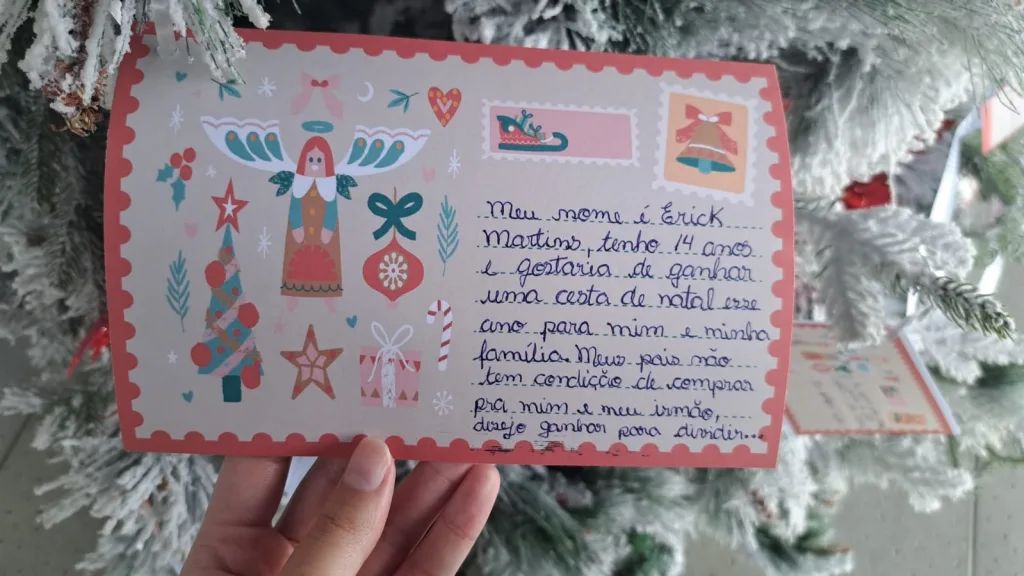 Meu nome é Erick
Martins, tenho 14 anos
e gostaria de ganhar
uma cesta de natal esse
ano para mim e minha
família. Meus pais não
tem condição de comprar
pra mim e meu irmão,
desejo ganhar para dividir...